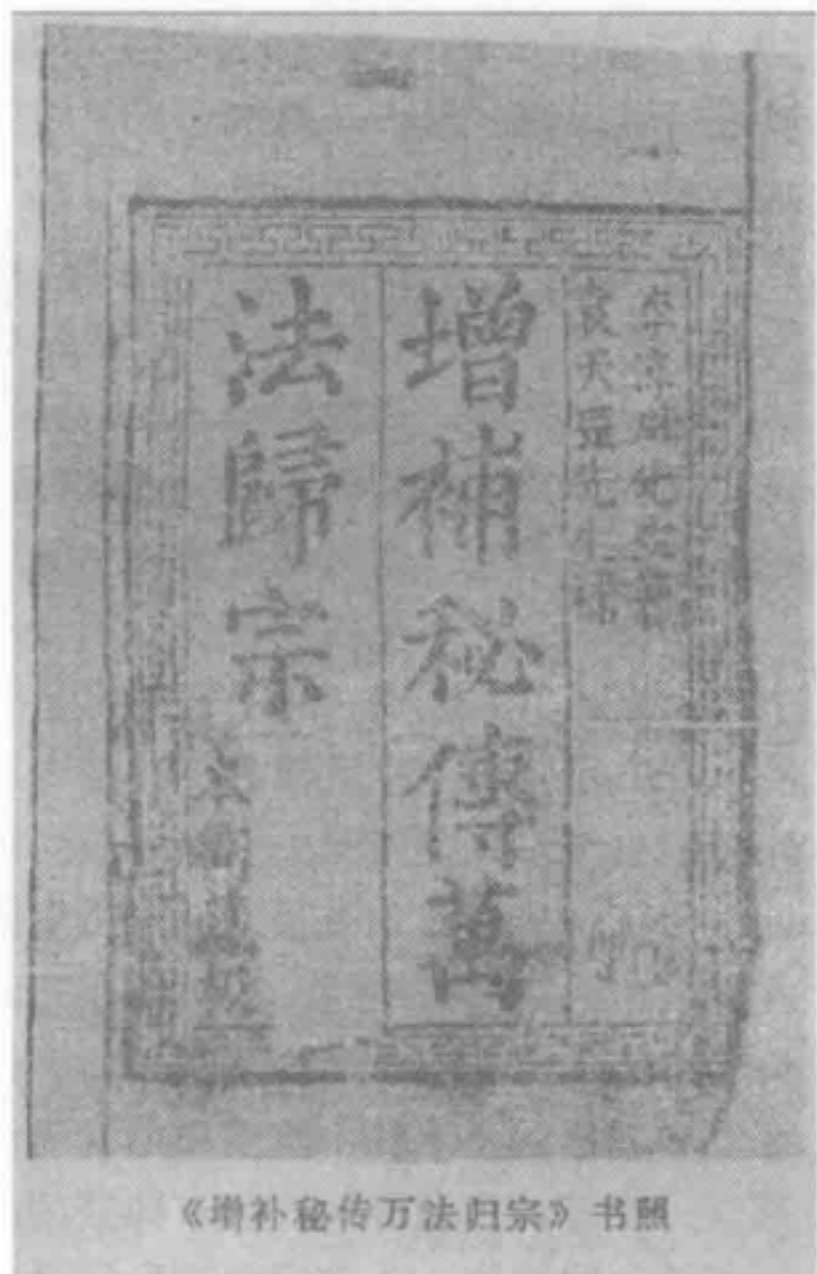 李淳風先生著
袁天罡先生
增補秘傳萬
法歸宗
《增补秘传万法归宗》书照